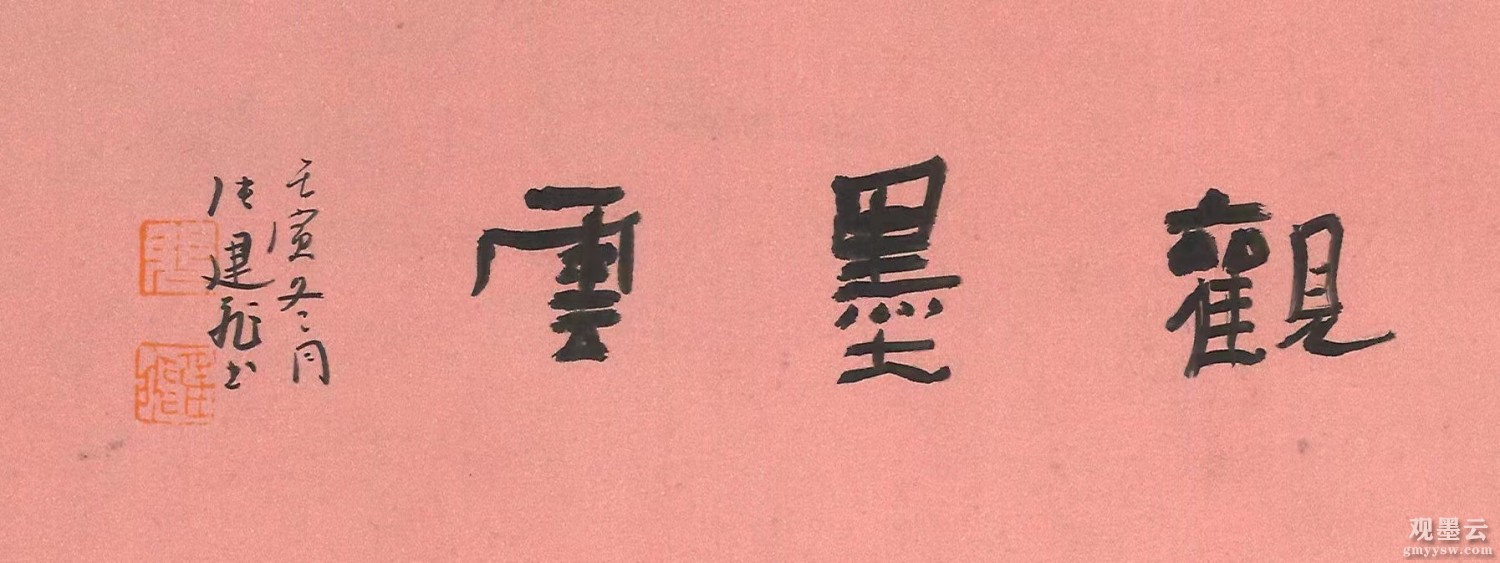 觀墨雲
壬寅冬月
张建飛书
观墨云
gmyysw.com